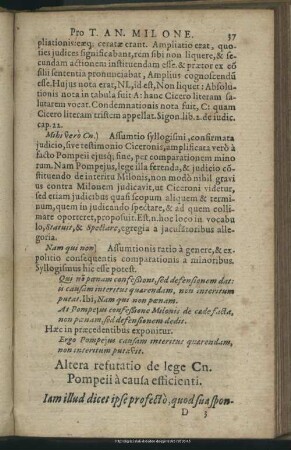 Pro T. AN. MILONE. 37
pliationis: exq; ceratæ erant. Ampliatio erat, quo-
ties judices significabant, rem sibi non liquere, & se-
cundam actionem instituendam esse. & prætor ex cõ
silii sententia pronunciabat, Amplius cognoscendũ
esse. Hujus nota erat, NL, id est, Non liquet: Absolu-
tionis nota in tabula fuit A: hanc Cicero literam sa-
lutarem vocat. Condemnationis nota fuit, C: quam
Cicero literam tristem appellat. Sigon. lib. 2. de iudic.
cap. 22.
Mihi verò Cn.) Assumtio syllogismi, confirmata
judicio, sive testimonio Ciceronis, amplificata verò à
facto Pompeii ejusq́; fine, per comparationem mino
rum. Nam Pompejus, lege illa ferenda, & judicio cõ-
stituendo de interitu Milonis, non modò nihil gravi
us contra Milonem judicavit, ut Ciceroni videtur,
sed etiam judicibus quasi scopum aliquem & termi-
num, quem in judicando spectare, & ad quem colli-
mare oporteret, proposuit. Est. n. hoc loco in vocabu
lo, Statuit, & Spectare, egregia a jaculatoribus alle-
goria.
Nam qui non) Assumtionis ratio à genere, & ex-
positio consequentis comparationis a minoribus.
Syllogismus hic esse potest.
Qui nõ pœnam confessioni, sed defensionem dat:
is causam interitus quærendam, non interitum
putat. Ibi, Nam qui non pœnam.
At Pompejus confessione Milonis de cæde facta,
non pœnam, sed defensionem dedit.
Hæc in præcedentibus exponitur.
Ergo Pompejus causam interitus quærendam,
non interitum putavit.
Altera refutatio de lege Cn.
Pompeii à causa efficienti.
Iam illud dicet ipse profectò, quod sua spon-
D 3